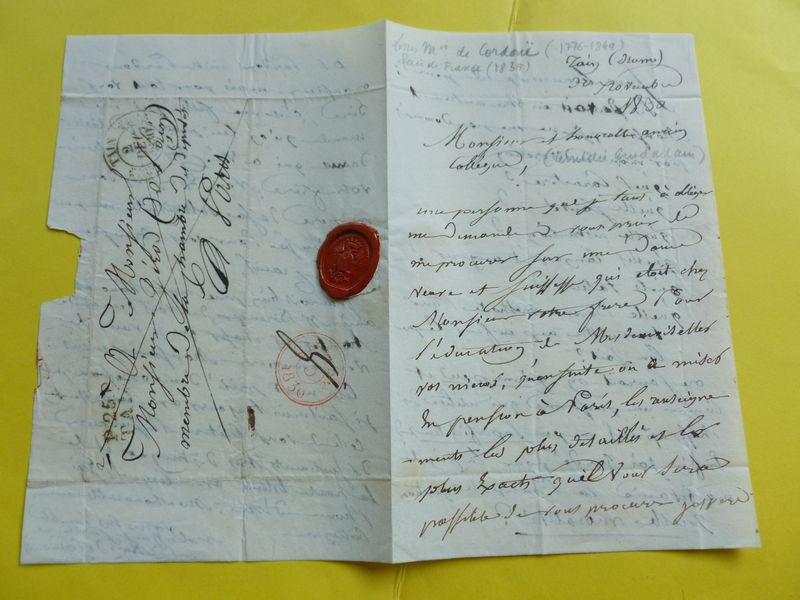 Mis de Cordoüe (1776-1849)
Pair de France (1837)
Tain (Drome)
novembre
1830
Monsieur et honorable ancien
Collegue,
une personne que je tiens à obliger
me demande de vous prier de
me procurer sur une dame
veuve et Suissesse qui etoit chez
Monsieur votre frere pour
l'éducation de Mesdemoiselles
vos nieces, qu'ensuite on a mises
En pension à Paris, les renseigne
ments les plus detaillés et les
plus Exacts qu'il vous sera
possible de vous procurer
A Monsieur
Monsieur
membre de la chambre des députés
A Paris
P.25.P
TAIN
TAIN
1830